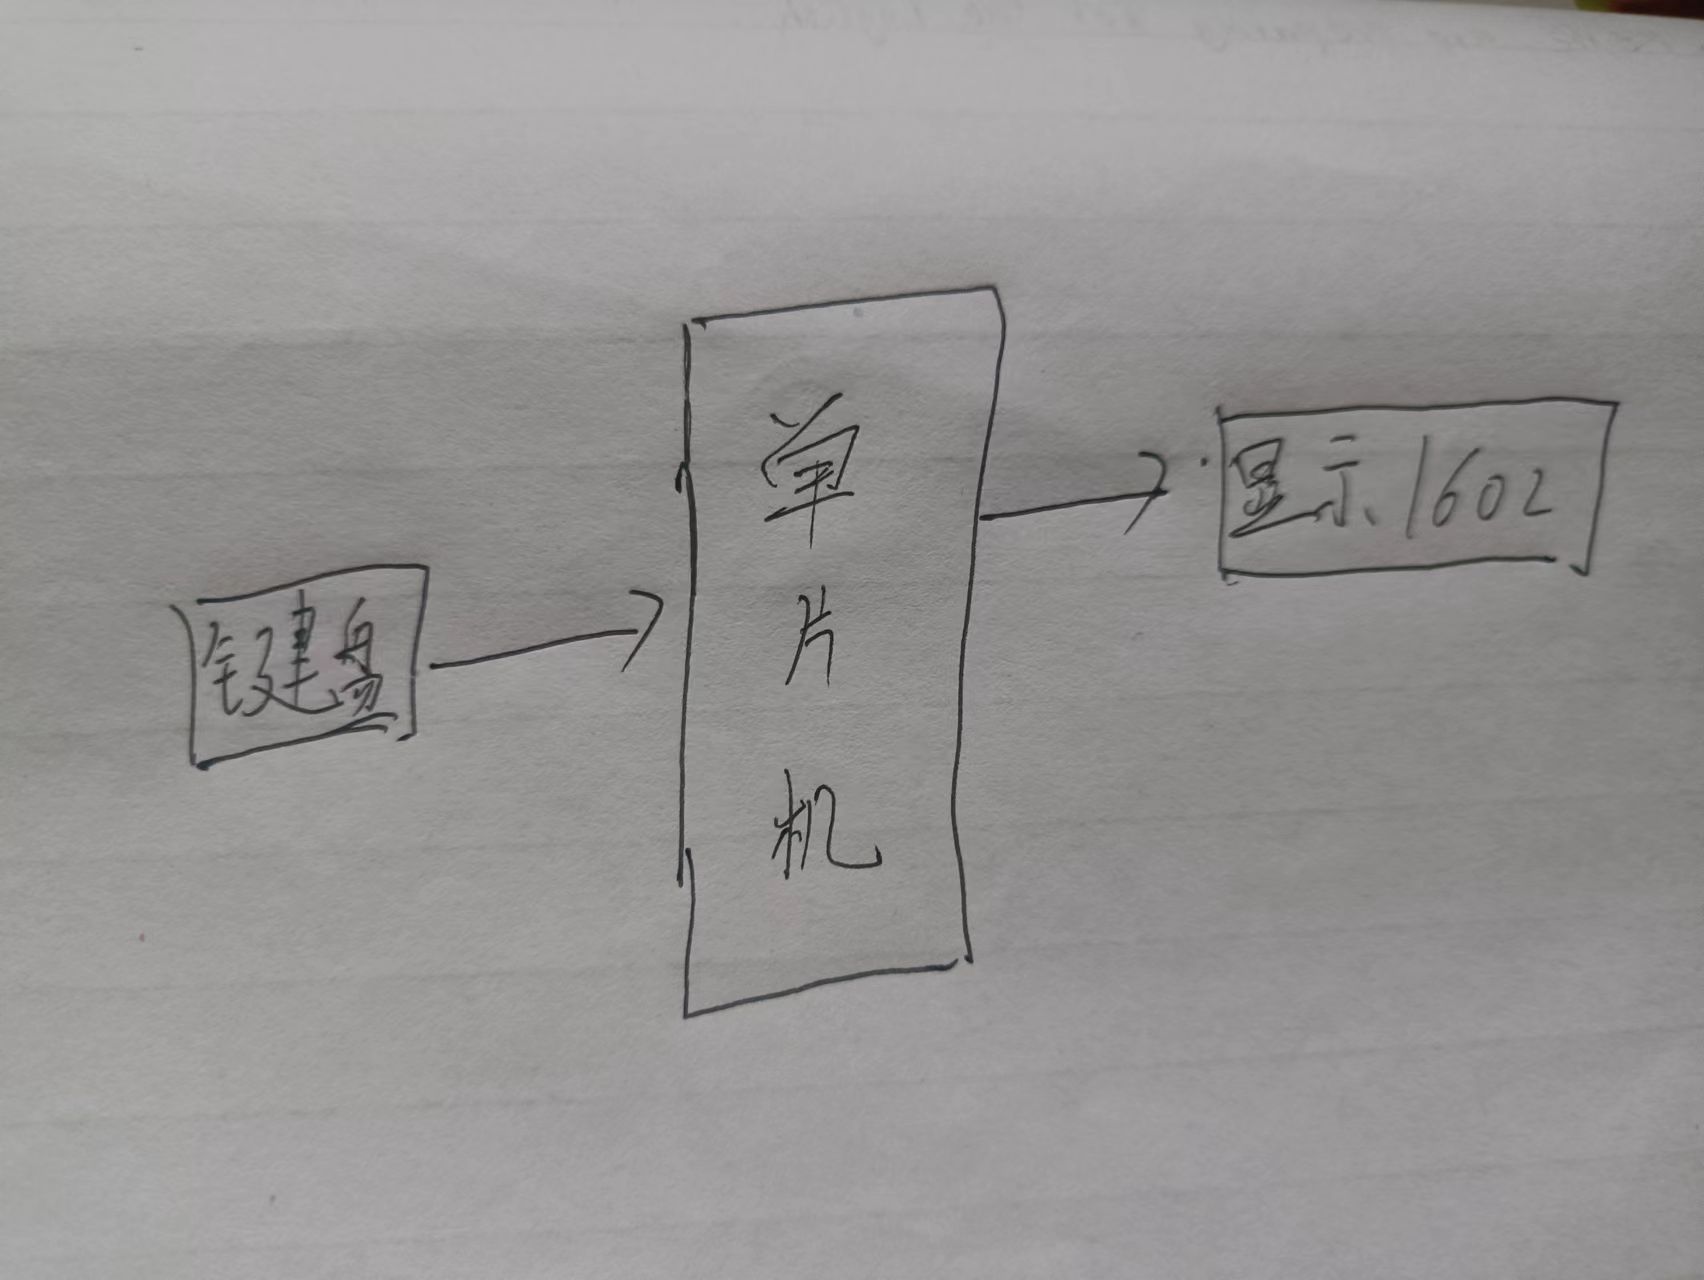 键盘
单片机
显示1602